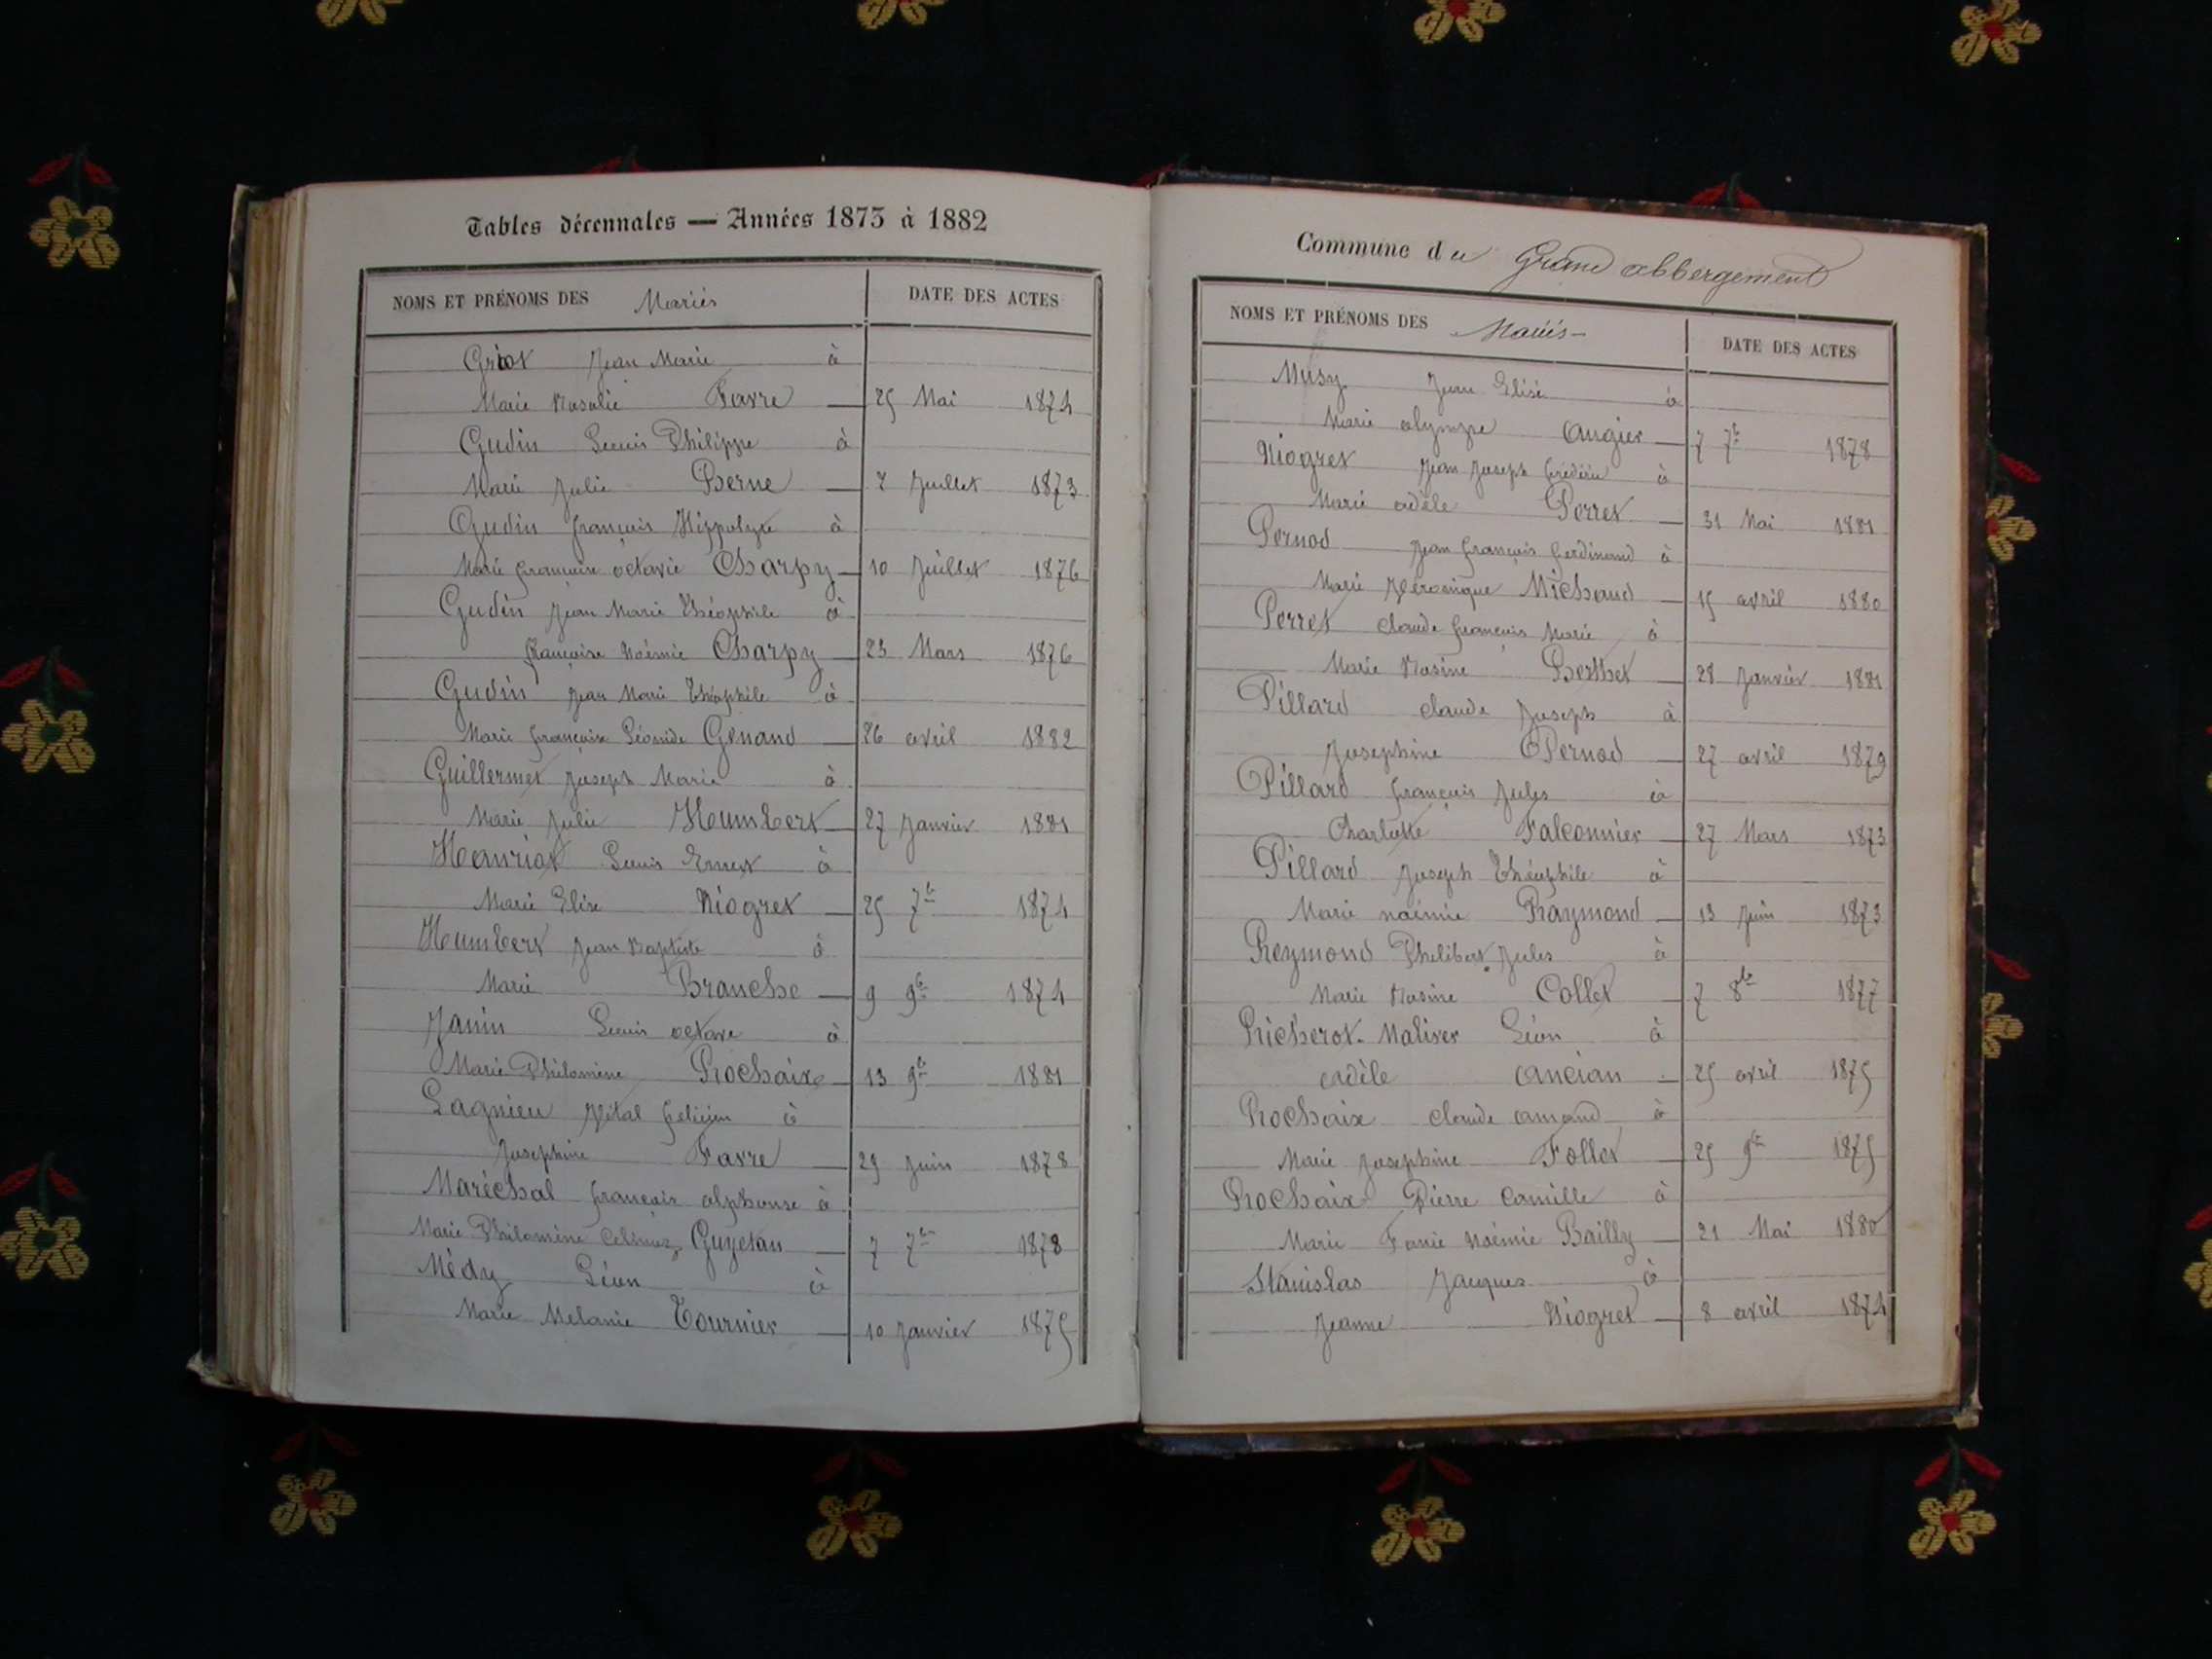 Tables décennales — Années 1873 à 1882
NOMS ET PRÉNOMS DES Mariés DATE DES ACTES
Griot Jean Marie à
Marie Rosalie Favre — 25 Mai 1874
Gudin Louis Philippe à
Marie Julie Berne — 7 Juillet 1873
Gudin françois Hippolyte à
Marie françoise octavie Charpy — 10 Juillet 1876
Gudin Jean Marie Théophile à
françoise Noémie Charpy — 23 Mars 1876
Gudin Jean Marie Théophile à
Marie françoise Léonide Genand — 26 avril 1882
Guillermet Joseph Marie à
Marie Julie Humbert — 27 Janvier 1881
Henriot Louis Ernest à
Marie Elise Niogret — 25 7bre 1874
Humbert Jean Baptiste à
Marie Branche — 9 9bre 1874
Janin Louis octave à
Marie Philomène Rochaix — 13 9bre 1881
Lagnieu Vital felicien à
Josephine Favre — 29 Juin 1878
Maréchal françois alphonse à
Marie Philomène Guyetan — 7 7bre 1878
Médy Léon à
Marie Melanie Tournier — 10 Janvier 1875
Commune du Grand abbergement
NOMS ET PRÉNOMS DES Mariés DATE DES ACTES
Musy Jean Elisé à
Marie olympe augier — 7 7bre 1878
Niogret Jean Joseph à
Marie adèle Perret — 31 Mai 1881
Pernod Jean françois ferdinand à
Marie Véronique Michaud — 15 avril 1880
Perret claude françois Marie à
Marie Rosine Berthet — 28 Janvier 1881
Pillard claude Joseph à
Josephine Pernod — 27 avril 1879
Pillard françois Jules à
Charlotte Falconnier — 27 Mars 1873
Pillard Joseph Théophile à
Marie noémie Raymond — 13 Juin 1873
Reymond Philibert Jules à
Marie Rosine Collet — 7 8bre 1877
Richerot-Maliver Léon à
adèle ancian — 25 avril 1875
Rochaix claude amand à
Marie Josephine Follet — 25 9bre 1875
Rochaix Pierre Camille à
Marie Fanie Noémie Bailly — 21 Mai 1880
Stanislas Jacques à
Jeanne Niogret — 8 avril 1874